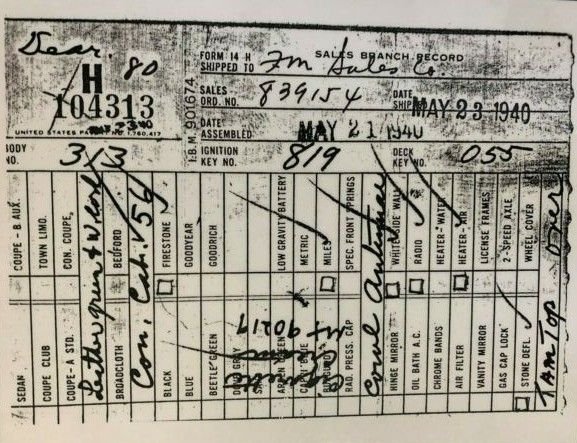 Dear. 80
H
104313
UNITED STATES PATENT NO. 1,760,417
I.B.M. 901674
FORM 14 H SALES BRANCH RECORD
SHIPPED TO Fm Sales Co.
SALES ORD. NO. 839154 DATE SHIP MAY 23 1940
DATE ASSEMBLED MAY 21 1940
BODY NO. 313 IGNITION KEY NO. 819 DECK KEY NO. 055
COUPE - B AUX.
SEDAN
TOWN LIMO.
COUPE CLUB
CON. COUPE
COUPE-A STD.
Leather green
BEDFORD
BROADCLOTH
Con. Cab. 56
FIRESTONE
BLACK
GOODYEAR
BLUE
GOODRICH
BEETLE GREEN
LOW GRAVITY BATTERY
METRIC
MILES
SPEC. FRONT SPRINGS
RAD. PRESS. CAP
90219
Cowl
WHITE SIDE WALL
HINGE MIRROR
RADIO
OIL BATH A.C.
HEATER - WATER
CHROME BANDS
HEATER - AIR
AIR FILTER
LICENSE FRAMES
VANITY MIRROR
2-SPEED AXLE
GAS CAP LOCK
WHEEL COVER
STONE DEFL.
TAN TOP